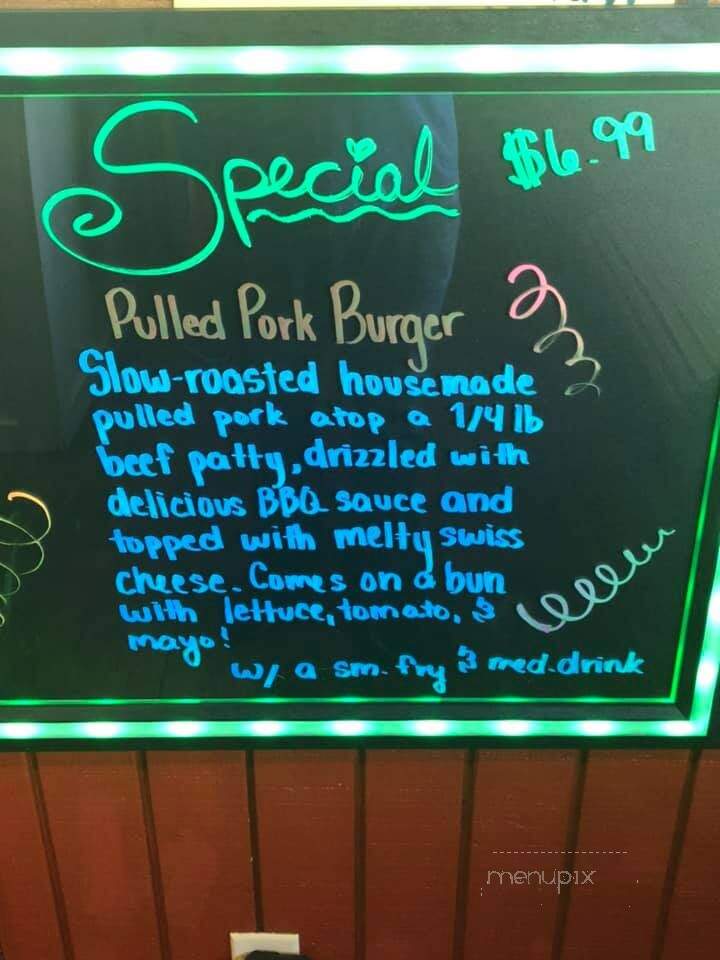 Special $6.99
Pulled Pork Burger
Slow-roasted housemade
pulled pork atop a 1/4 lb
beef patty, drizzled with
delicious BBQ sauce and
topped with melty swiss
cheese. Comes on a bun
with lettuce, tomato, &
mayo!
w/ a sm. fry & med. drink
menupix